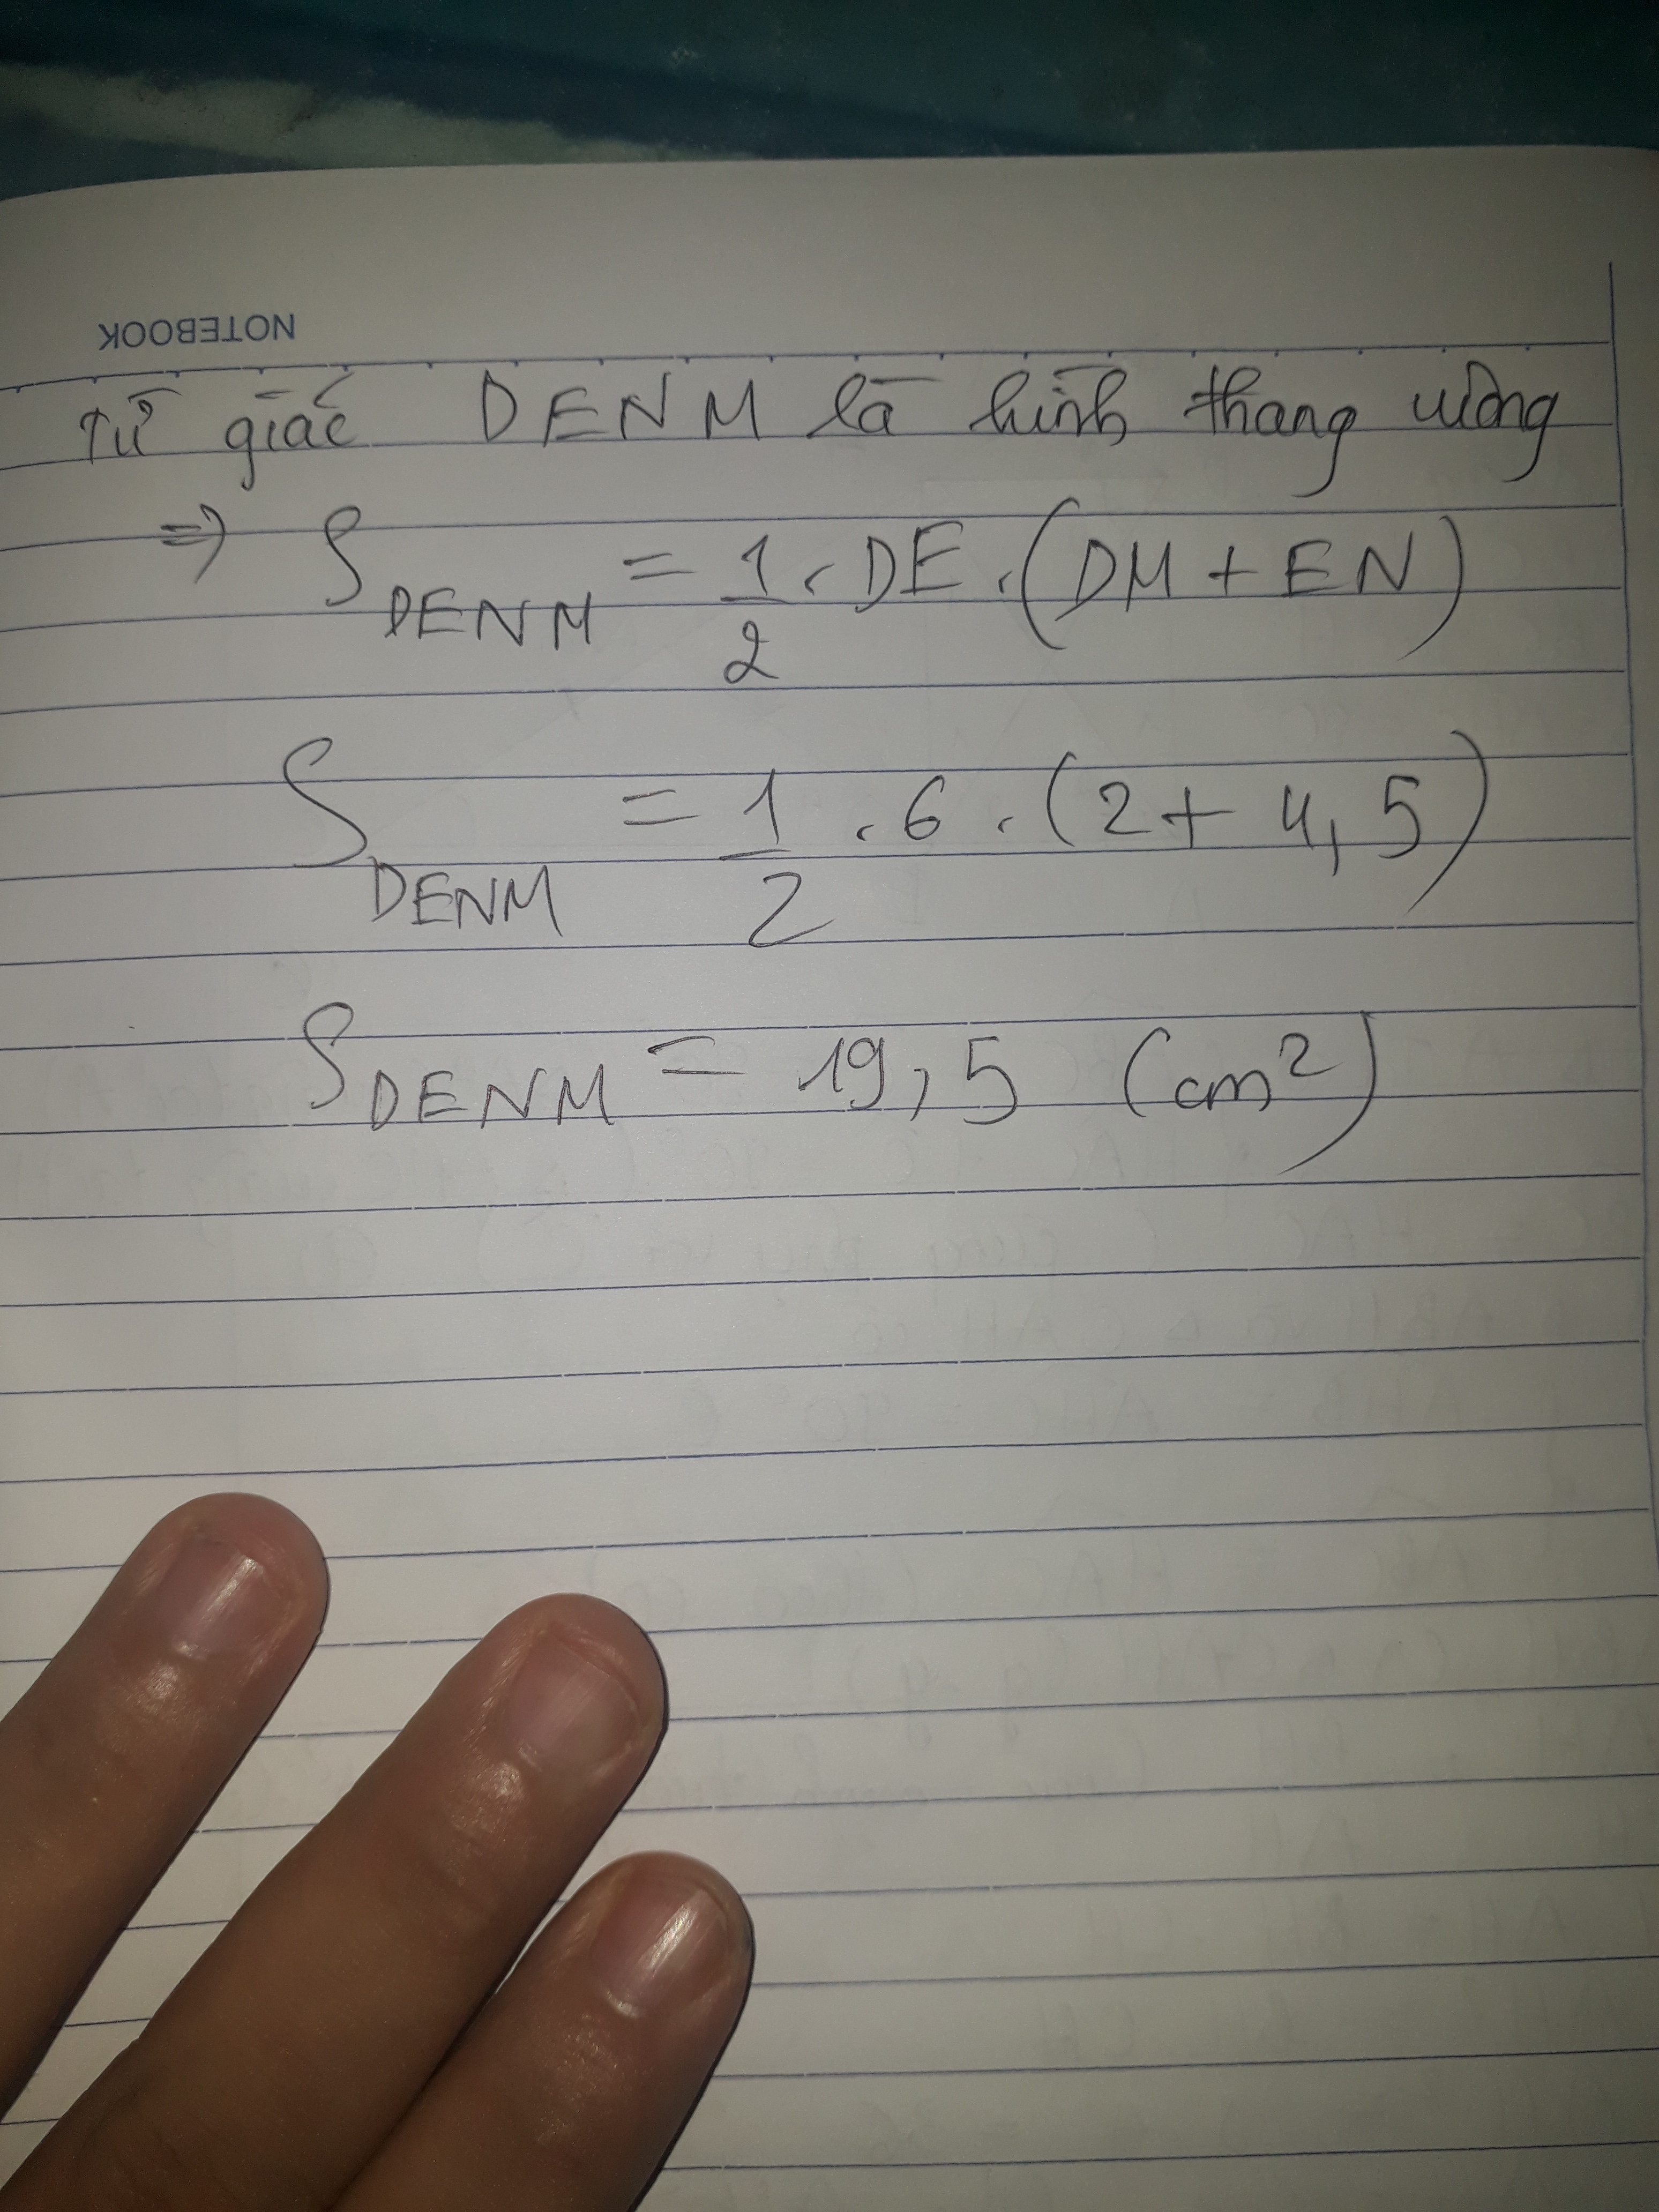 NOTEBOOK
Tứ giác DENM là hình thang vuông
=> S_DENM = 1/2 . DE . (DM + EN)
S_DENM = 1/2 . 6 . (2 + 4,5)
S_DENM = 19,5 (cm²)